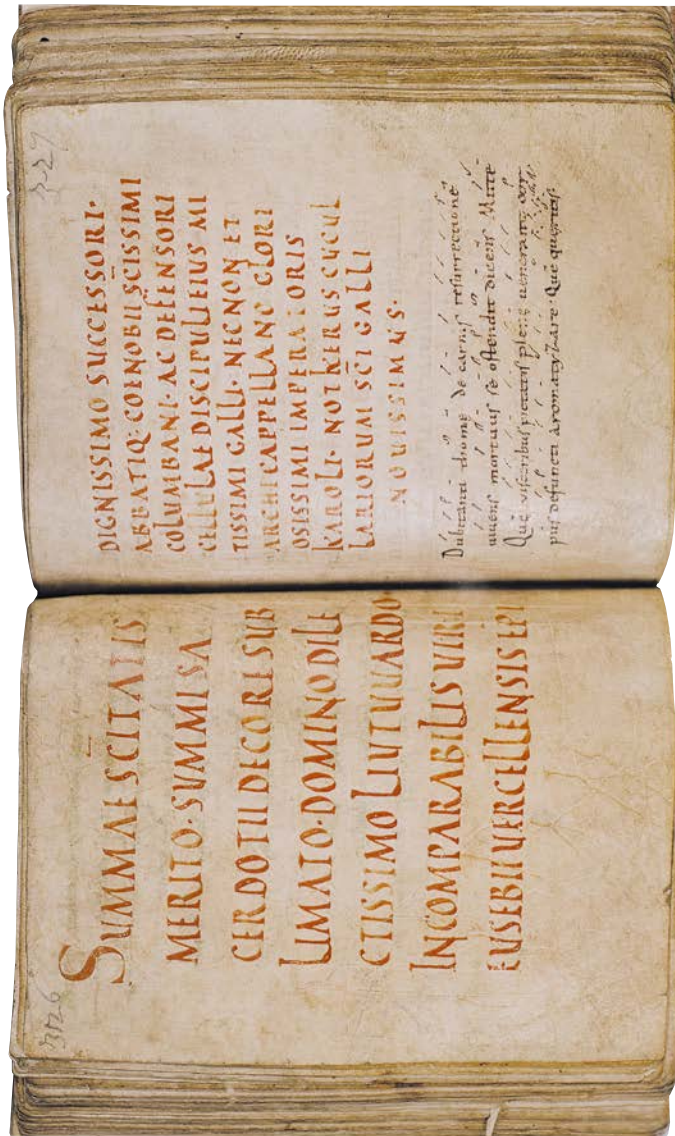 326
SUMMAE SCĪTATIS
MERITO · SUMMI SA
CERDOTII DECORE SUB
LIMATO · DOMINO DILE
CTISSIMO LIUTUUARDO
INCOMPARABILIS UIRI
EUSEBII UERCELLENSIS EPI
327
DIGNISSIMO SUCCESSORI ·
ABBATIQ · COENOBII SCISSIMI
COLUMBANI · AC DEFENSORI
CELLULAE DISCIPULI EIUS MI
TISSIMI GALLI · NECNON ET
ARCHICAPPELLANO GLORI
OSISSIMI IMPERATORIS
KAROLI · NOTKERUS CUCUL
LARIORUM SCĪ GALLI
NOUISSIMUS ·
Dubitanti thome de carnis resurrectione
uiuens mortuus se ostendit dicens Mitte
Quę uisceribus pietatis plenę uenerant cor
pus defuncti aromatyzare · Quę queritis